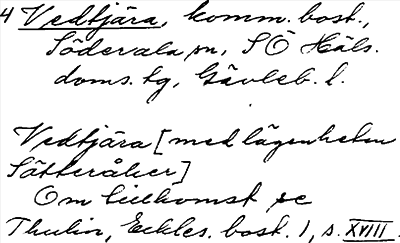 4 Vedtjära, komm. bost.,
Söderala sn, SÖ Häls.
doms. tg, Gävleb. l.
Vedtjära [med lägenheten
Sätteråker]
Om tillkomst se
Thulin, Eckles. bost. 1, s. XVIII.